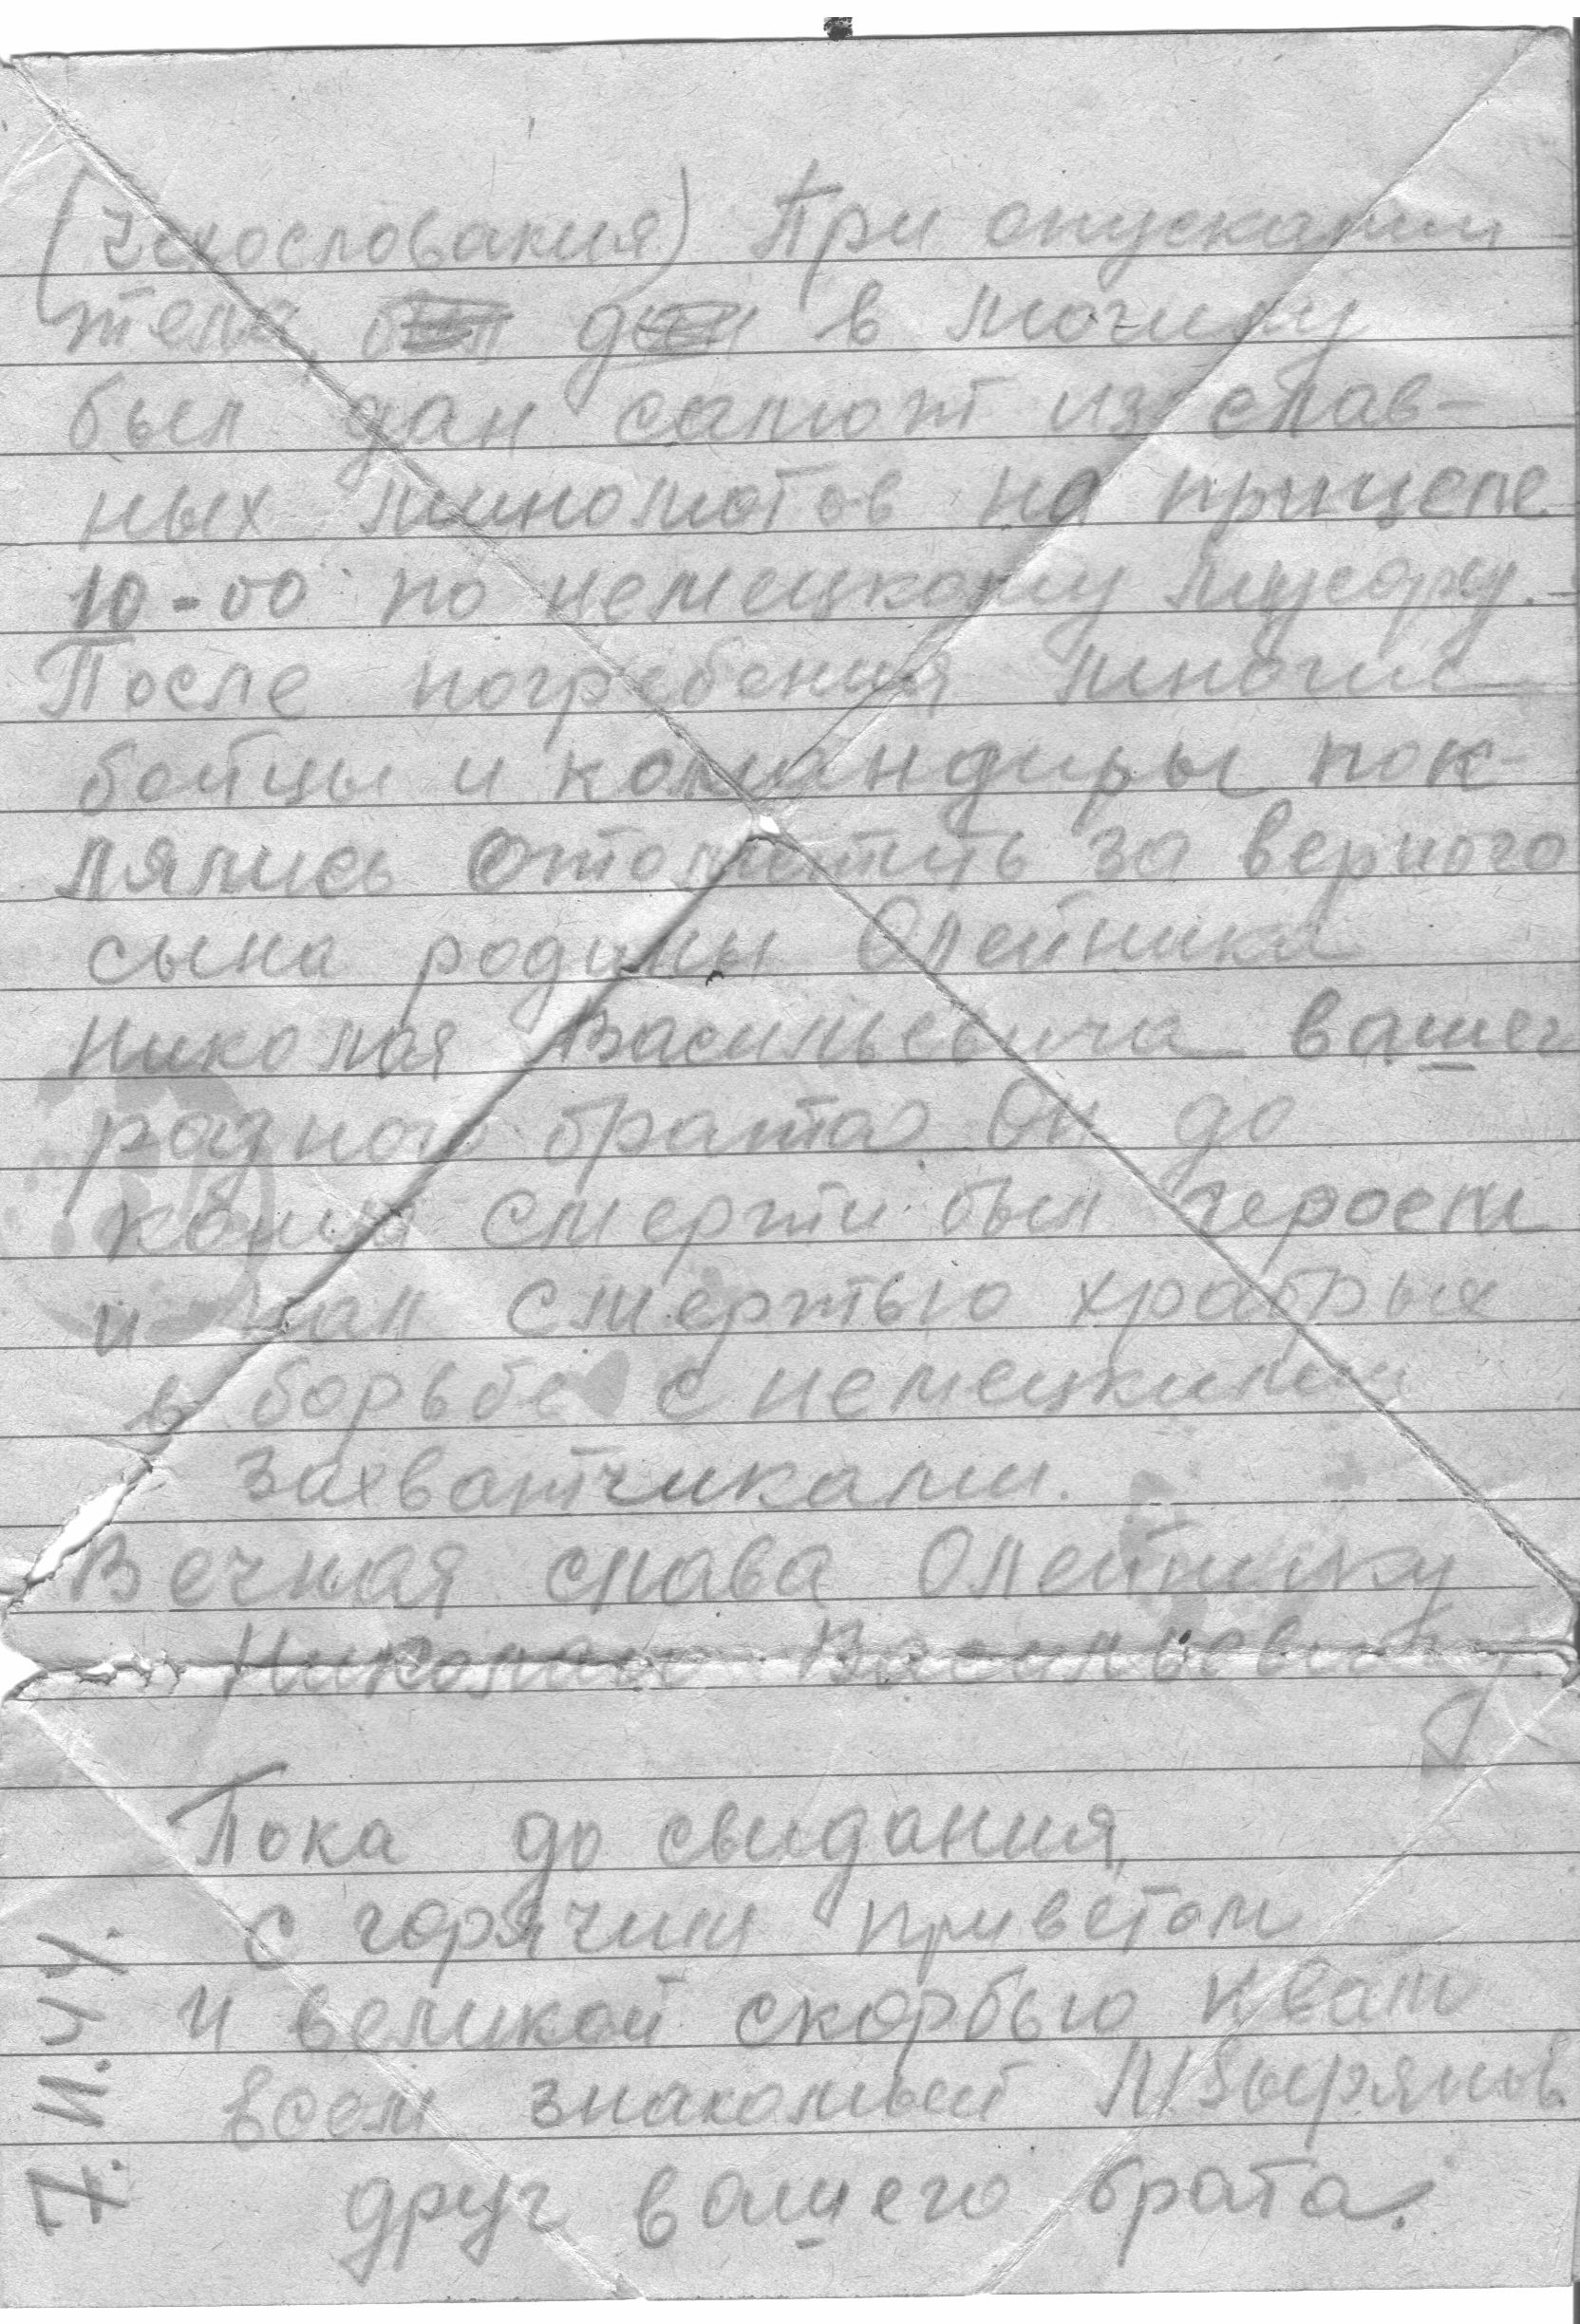 (Чехословакия) При опускании
тела, в могилу
был дан салют из слав-
ных миномотов на прицеле
10-00 по немецкому
После погребения многие
бойцы и командиры пок-
лялись отомстить за верного
сына родины Олейника
Николая Васильевича вашег
родного брата Он до
конца смерти был героем
и пал смертью храбрых
в борьбе с немецкими
захватчиками.
Вечная слава Олейнику
Николаю Васильевичу.
Пока до свидания,
с горячим приветом
и великой скорбью к вам
всем знакомый М Зырянов
друг вашего брата.
7.11.44.